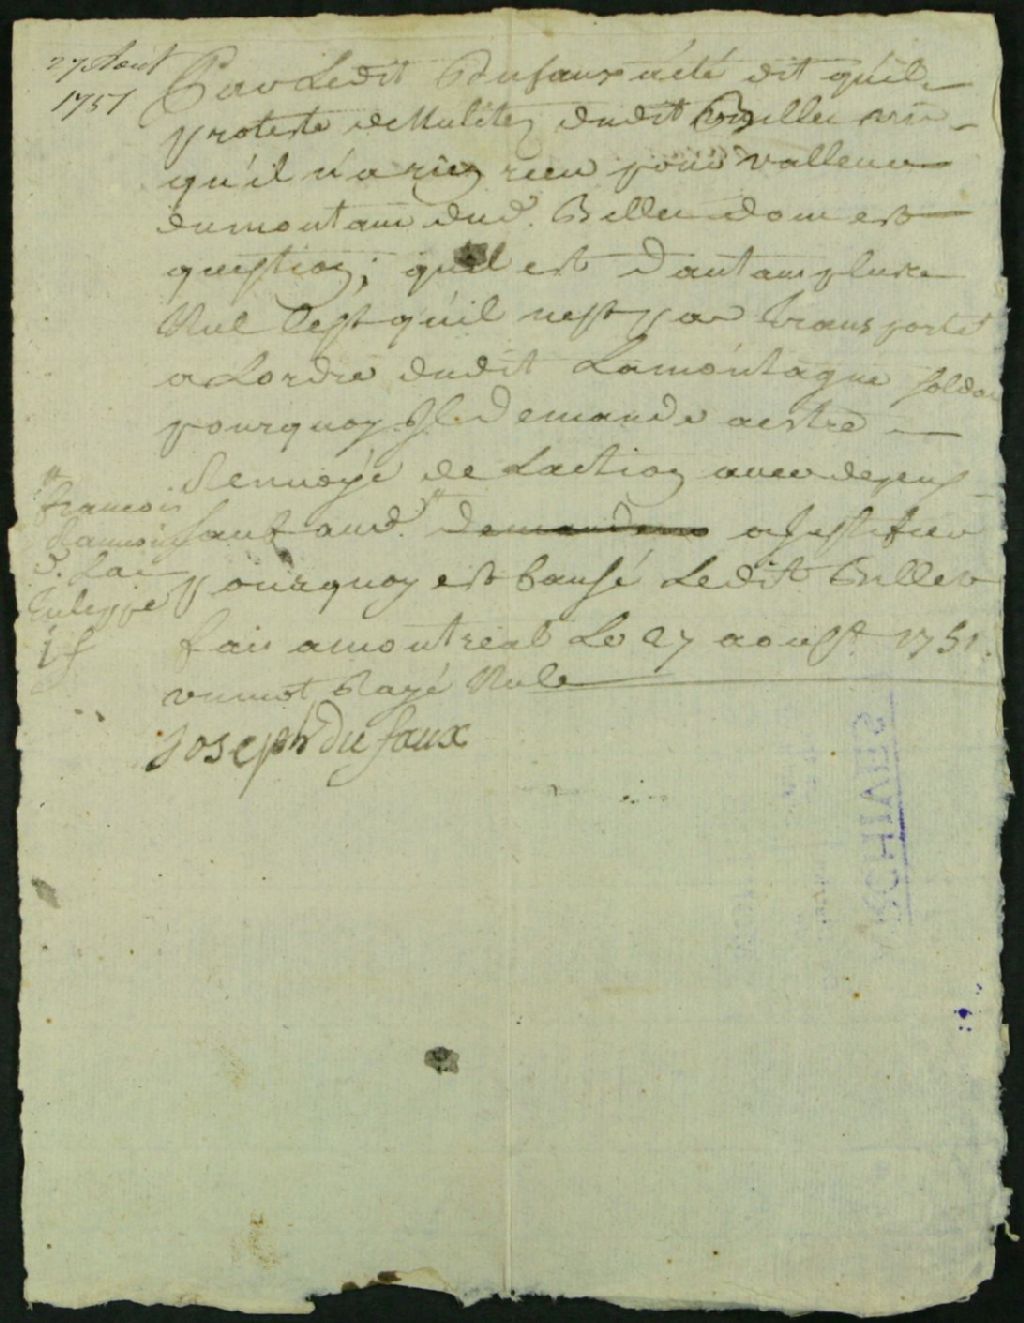 27 Aout
1751
Par Ledit Dufaux a été dit qu'il
proteste de Nulitez dudit Billet vû
qu'il n'a rien reçu pour valleur
du montant dud. Billet dont est
question; quil est d'autant plus
Nul C'est qu'il n'est pas transporté
a Lordre dudit Lamontagne soldat
pourquoy Il demande aestre
Renvoyé de Laction avec depens
# sauf aud. # demandeur a Justifier
pourquoy est causé Ledit Billet
fait a montreal Le 27 aoust 1751.
un mot Rayé Nul
Joseph du faux
# francois
d. La
tulippe
ARCHIVES